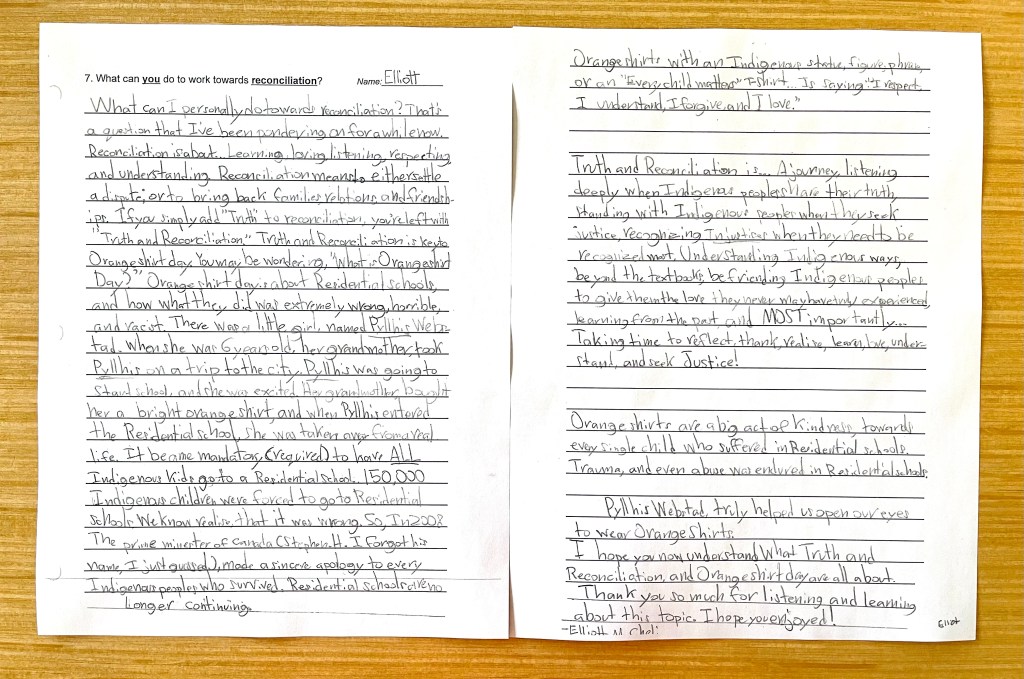 7. What can you do to work towards reconciliation?
Name: Elliott
What can I personally do towards reconciliation? That's
a question that I've been pondering on for awhile now.
Reconciliation is about... Learning, loving, listening, respecting
and understanding. Reconciliation means to either settle
a dispute, or to bring back families relations, and friendsh-
ips. If you simply add "Truth" to reconciliation, you're left with
"Truth and Reconciliation." Truth and Reconciliation is key to
Orange shirt day. You may be wondering, "What is Orange shirt
Day?" Orange shirt day is about Residential schools,
and how what they did was extremely wrong, horrible,
and racist. There was a little girl, named Pyllhis Webs-
tad. When she was 6 years old, her grandmother, took
Pyllhis on a trip to the city. Pyllhis was going to
start school, and she was excited. Her grandmother bought
her a bright orange shirt, and when Pyllhis entered
the Residential school, she was taken away from a real
life. It became mandatory, (required) to have ALL
Indigenous Kids go to a Residential School. 150,000
Indigenous children were forced to go to Residential
schools. We know realise, that it was wrong. So, In 2008
The prime minister of Canada (Stephen. H. I forgot his
name, I just guessed), made a sincere apology to every
Indigenous peoples who survived. Residential schools are no
longer continuing.
Orange shirts with an Indigenous statue, figure, phrase,
or an "Every child matters" T-shirt... Is saying "I respect,
I understand, I forgive, and I love."
Truth and Reconciliation is... A journey, listening
deeply when Indigenous peoples share their truth,
standing with Indigenous peoples when they seek
justice recognizing Injustices when they need to be
recognized most. Understanding Indigenous ways,
beyond the textbooks, befriending Indigenous peoples
to give them the love they never may have truly experienced,
learning from the past, and MOST importantly...
Taking time to reflect, thank, realize, learn, love, under-
stand, and seek Justice!
Orange shirts are a big act of kindness towards
every single child who suffered in Residential schools.
Trauma, and even abuse was endured in Residential schools.
Pyllhis Webstad, truly helped us open our eyes
to wear Orange Shirts.
I hope you now understand What Truth and
Reconciliation, and Orange shirt day are all about.
Thank you so much for listening and learning
about this topic. I hope you enjoyed!
-Elliott M.
Elliot